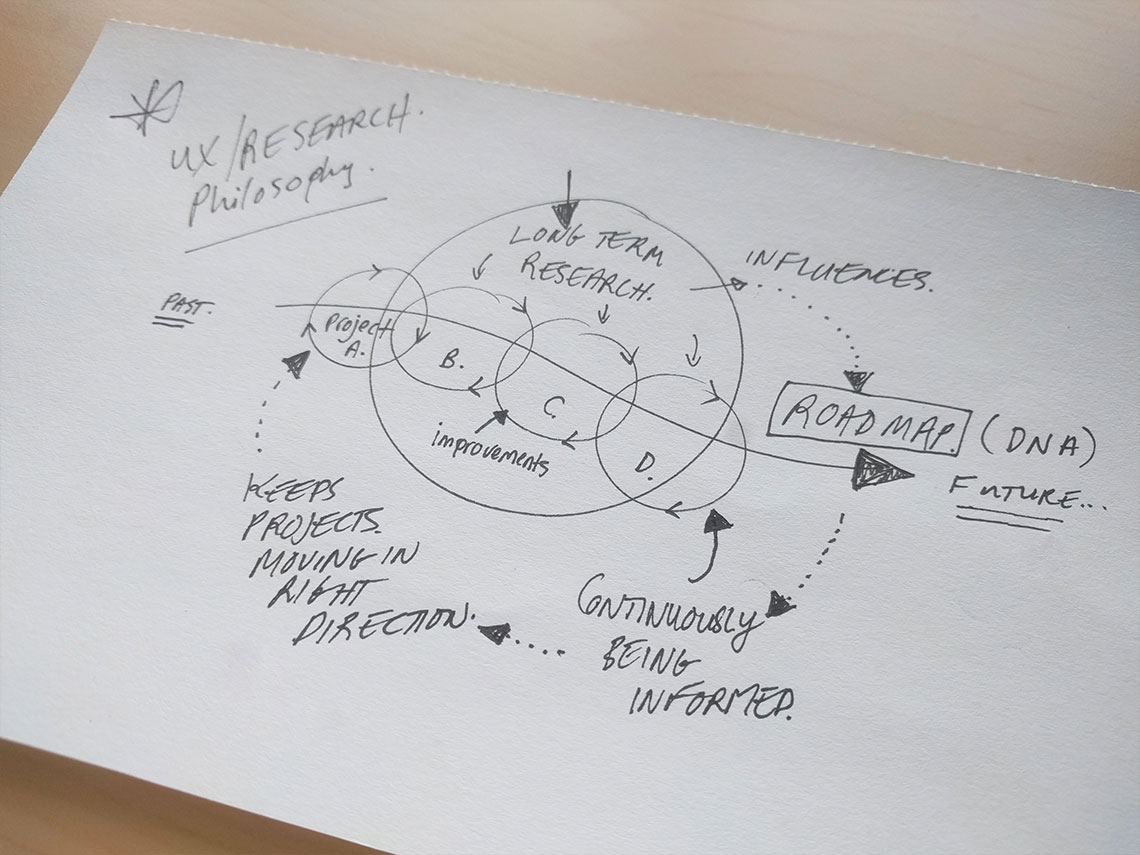 UX/RESEARCH.
Philosophy.
LONG TERM
RESEARCH.
INFLUENCES.
PAST.
Project
A.
B.
C.
D.
improvements
ROADMAP. (DNA)
FUTURE...
KEEPS
PROJECTS.
MOVING IN
RIGHT
DIRECTION.
CONTINUOUSLY
BEING
INFORMED.